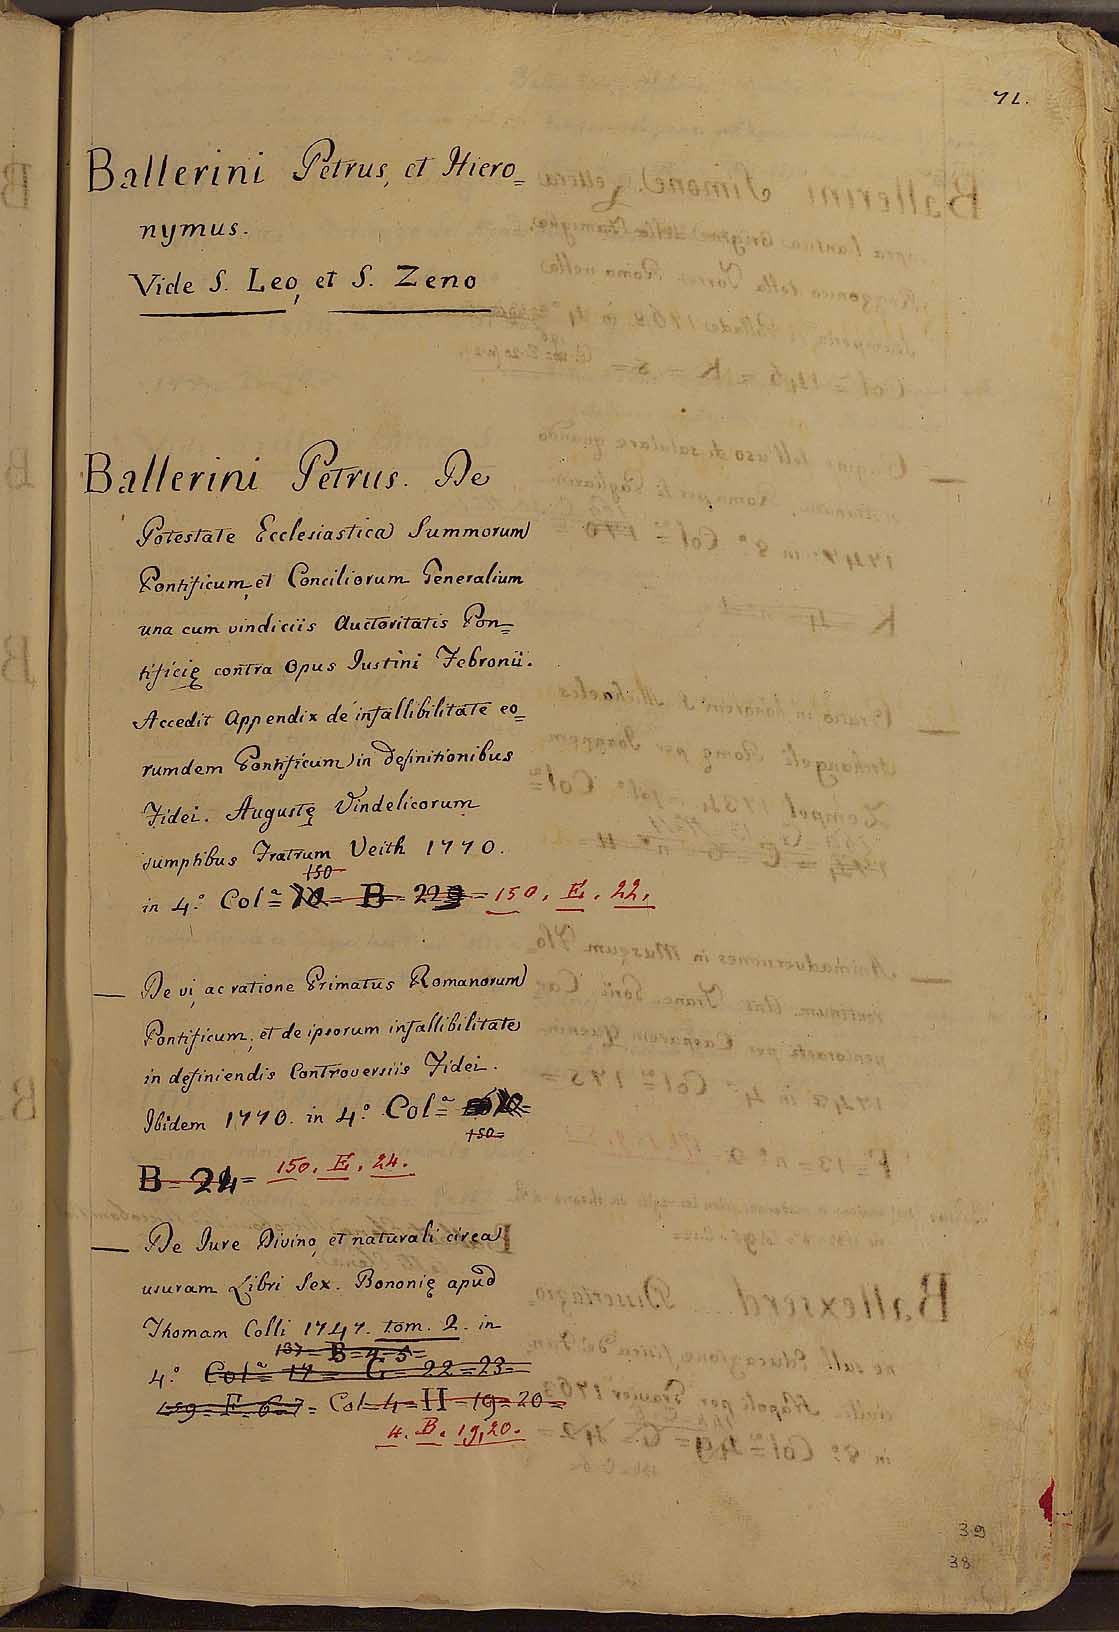 71.
Ballerini Petrus, et Hiero=
nymus.
Vide S. Leo, et S. Zeno
Ballerini Petrus. De
Potestate Ecclesiastica Summorum
Pontificum, et Conciliorum Generalium
una cum vindiciis Auctoritatis Pon=
tificię contra Opus Justini Febronii.
Accedit Appendix de infallibilitate eo=
rumdem Pontificum in definitionibus
Fidei. Augustę Vindelicorum
sumptibus Fratrum Veith 1770.
150
in 4.º Colª = B = 229 = 150. E. 22.
— De vi, ac ratione Primatus Romanorum
Pontificum, et de ipsorum infallibilitate
in definiendis Controversiis Fidei.
Ibidem 1770. in 4.º Colª =
150=
B = 24 = 150. E. 24.
— De Jure Divino, et naturali circa
usuram Libri Sex. Bononię apud
Thomam Colli 1747. tom. 2. in
137 = B = 4 = 5 =
4.º Colª = 17 = G = 22 = 23 =
159 = F = 6 = 7 = Col = 4 = H = 19 = 20 =
4. B. 19, 20.
39
38